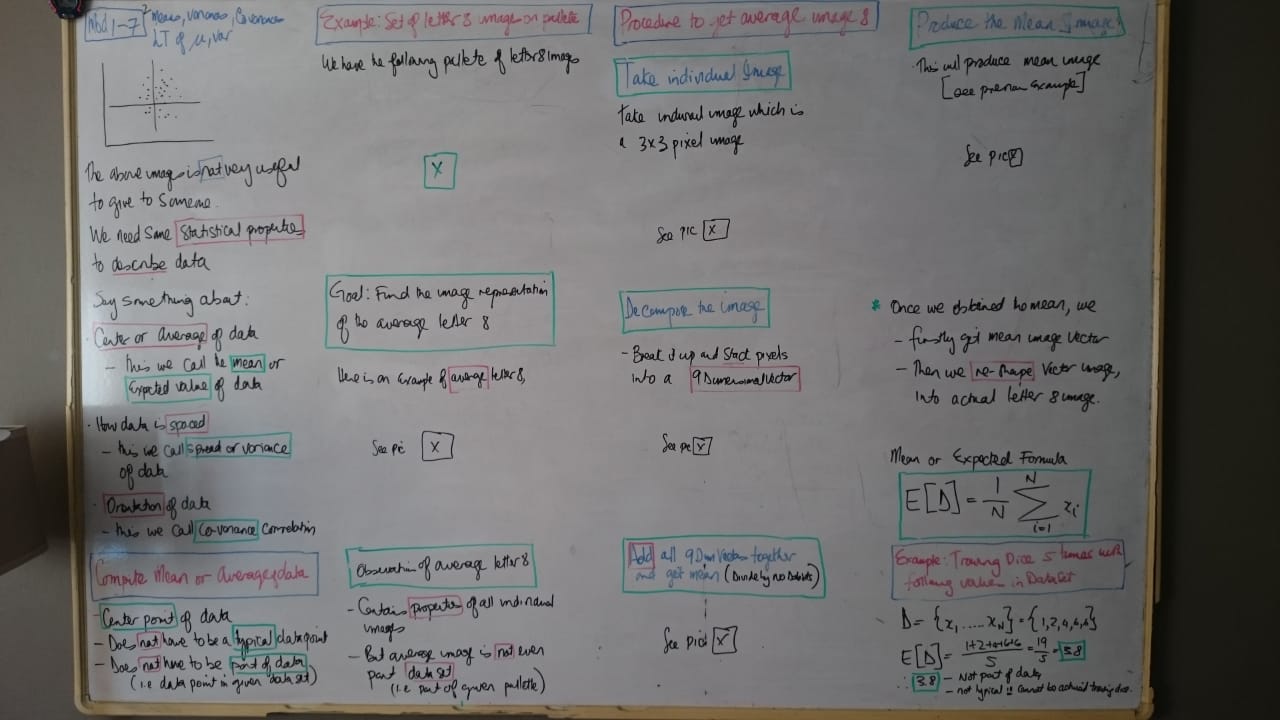 Mod 1-7
Means, Variances, Covariances
LT of μ, var
The above image is not very useful
to give to someone.
We need some statistical properties
to describe data
Say something about:
· Center or average of data
- this we call the mean or
Expected value of data
· How data is spaced
- this we call spread or variance
of data
· Orientation of data
- this we call Covariance Correlation
Compute Mean or Average of data
- Center point of data
- Does not have to be a typical data point
- Does not have to be part of data
(i.e data point in given data set)
Example: Set of letter 8 image on pallete
We have the following pallete of letter 8 images
X
Goal: Find the image representation
of the average letter 8
Here is an example of average letter 8,
See pic X
Observation of average letter 8
- Contains properties of all individual
images
- But average image is not even
part data set
(i.e part of given pallette)
Procedure to get average image 8
Take individual Image
Take individual image which is
a 3x3 pixel image
See pic X
Decompose the image
- Break it up and Stack pixels
into a 9 Dimensional vector
See pic X
Add all 9 Dim Vectors together
and get mean (Divide by no Datasets)
See pic X
Produce the Mean Image
· This will produce mean image
[see previous example]
See pic X
* Once we obtained the mean, we
- firstly get mean image vector
- Then we re-shape vector image,
into actual letter 8 image.
Mean or Expected Formula
E[D] = 1/N Σ_{i=1}^{N} x_i
Example: Throwing Dice 5 times with
following values in Dataset
D = {x₁, ..... x_N} = {1,2,4,6,6}
E[D] = 1+2+4+6+6/5 = 19/5 = 3.8
∴ 3.8 - Not part of data,
- not typical ∵ cannot be actual throwing dice.